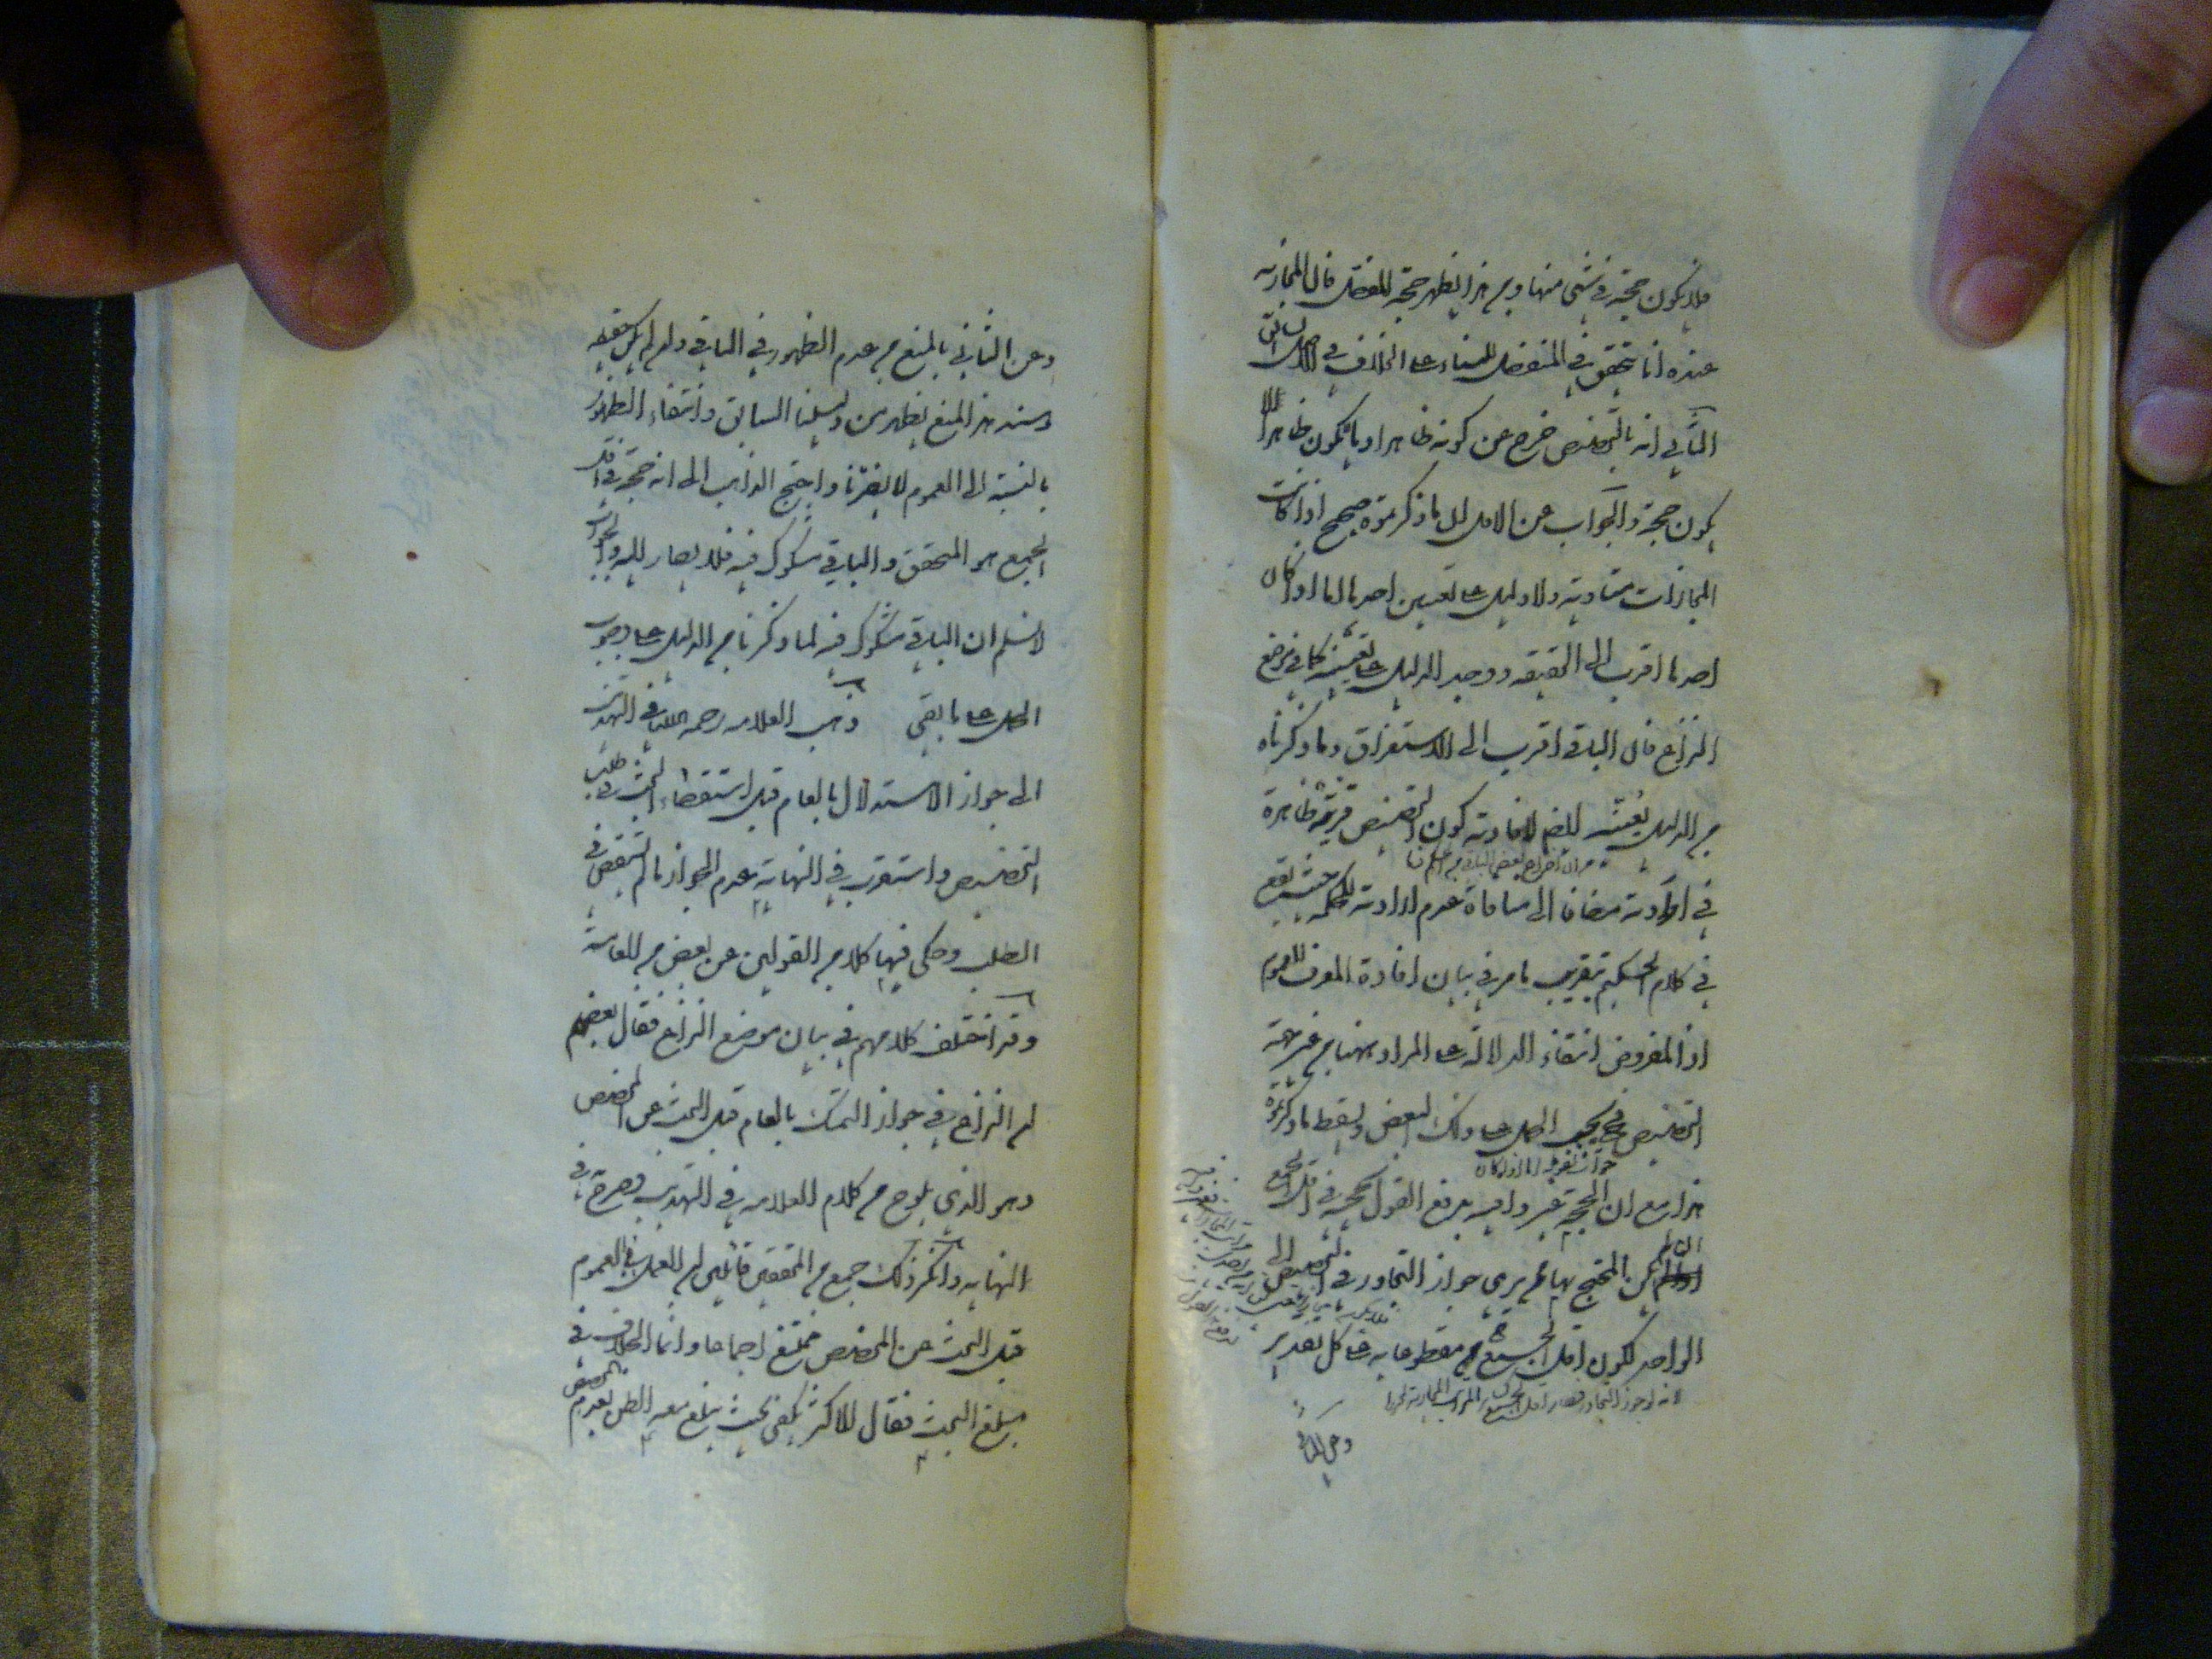 فلا يكون حجة في شئ منها ومن هذا يظهر حجة المفصل فان المجازية
عنده انما يتحقق في المنفصل للبناء على الخلاف في الاصل السابق
الثاني انه بالتخصيص خرج عن كونه ظاهرا وما لا يكون ظاهرا لا
يكون حجة والجواب عن الاول ان ما ذكرتموه صحيح اذا كانت
المجازات متساوية ولا دليل على تعيين احدها اما اذا كان
احدها اقرب الى الحقيقة ووجد الدليل على تعيينه كما في موضع
النزاع فان الباقي اقرب الى الاستغراق وما ذكرناه
من الدليل يعينه ايضا لافادته كون التخصيص قرينة ظاهرة
في ارادته مضافا الى منافاة عدم ارادته للحكمة حيث يقع
في كلام الحكيم بتقريب ما مر في بيان افادة المعرف للعموم
اذ المفروض انتفاء الدلالة على المراد ههنا من غير جهة
التخصيص فح يجب الحمل على ذلك البعض ويسقط ما ذكرتموه
هذا مع ان الحجة غير وافية بدفع القول بحجيته في اقل الجمع
ان لم يكن المحتج بها ممن يرى جواز التجاوز في التخصيص الى
الواحد لكون اقل الجمع ح مقطوعا به على كل تقدير
وعن الثاني
وعن الثاني بالمنع من عدم الظهور في الباقي وان لم يكن حقيقة
وسند هذا المنع يظهر من دليلنا السابق وانتفاء الظهور
بالنسبة الى العموم لا يضرنا واحتج الذاهب الى انه حجة في اقل
الجمع هو المتحقق والباقي مشكوك فيه فلا يصار اليه والجواب
لا نسلم ان الباقي مشكوك فيه لما ذكرنا من الدليل على وجوب
الحمل على ما بقي ذهب العلامه رحمه الله في التهذيب
الى جواز الاستدلال بالعام قبل استقصاء البحث في طلب
التخصيص واستقرب في النهاية عدم الجواز ما لم يستقص في
الطلب وحكى فيها كلا من القولين عن بعض من العامة
وقد اختلف كلامهم في بيان موضع النزاع فقال بعضهم
ان النزاع في جواز التمسك بالعام قبل البحث عن المخصص
وهو الذي يلوح من كلام العلامه في التهذيب وصرح في
النهايه وانكر ذلك جمع من المحققين قائلين ان العمل بالعموم
قبل البحث عن المخصص ممتنع اجماعا وانما الخلاف في
مبلغ البحث فقال الاكثر يكفي بحيث يغلب معه الظن بعدم المخصص